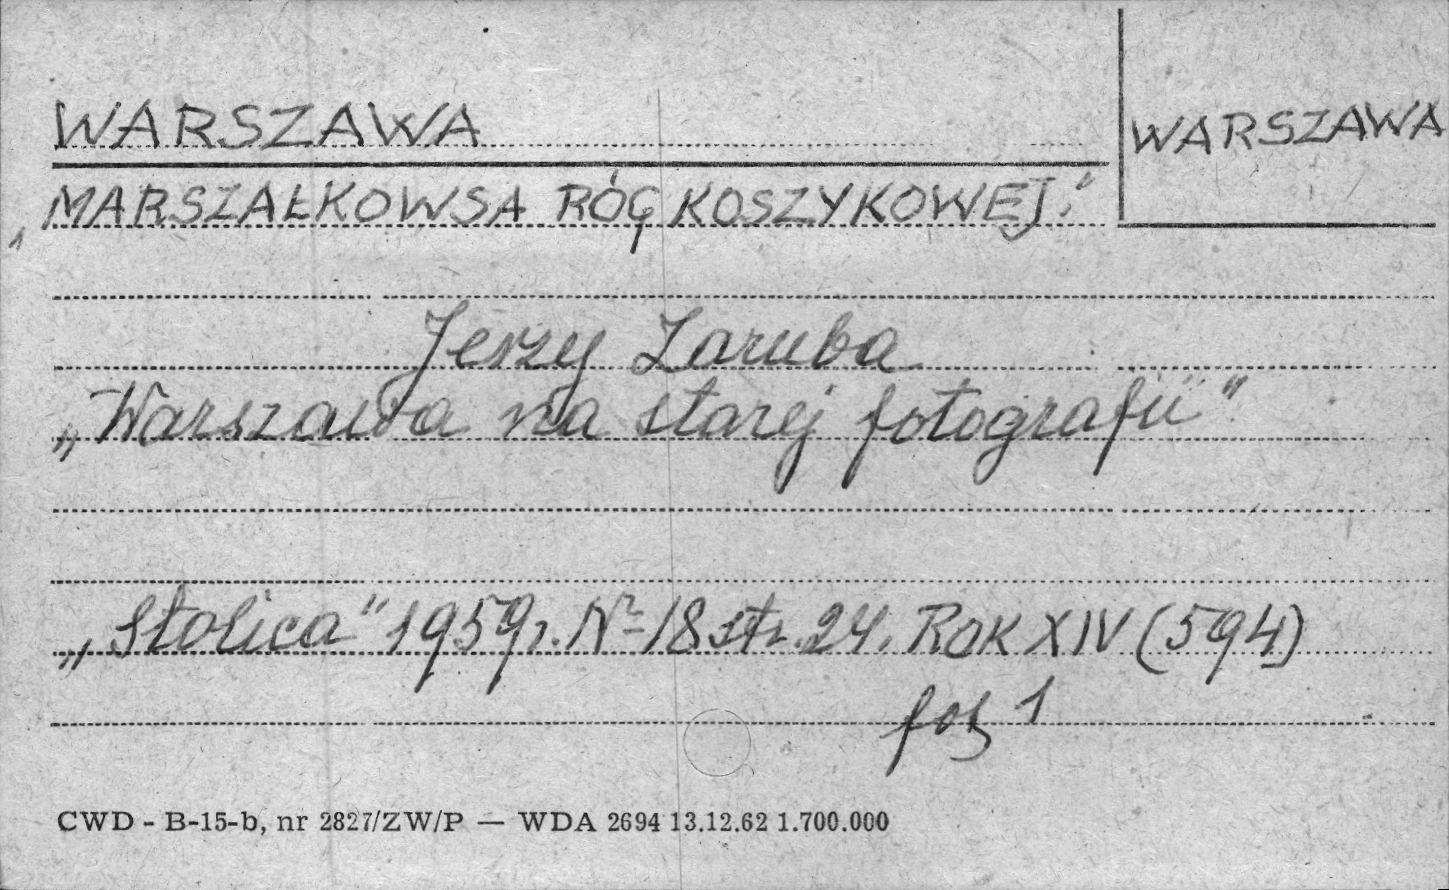 WARSZAWA
WARSZAWA
„MARSZAŁKOWSA RÓG KOSZYKOWEJ."
Jerzy Zaruba
„Warszawa na starej fotografii"
„Stolica" 1959r. Nr 18 str. 24. ROK XIV (594)
fot 1
CWD - B-15-b, nr 2827/ZW/P — WDA 2694 13.12.62 1.700.000